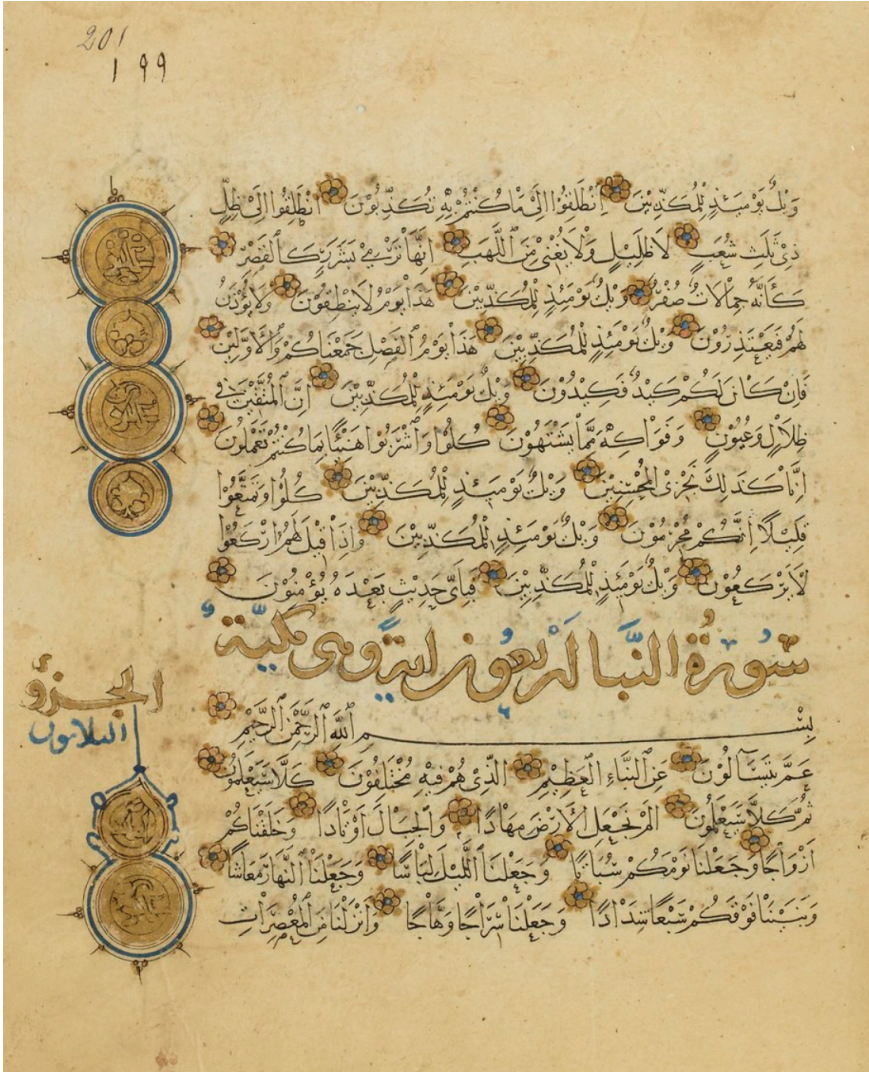 201
١٩٩
وَيْلٌ يَوْمَئِذٍ لِلْمُكَذِّبِينَ اِنْطَلِقُوا اِلَىٰ مَا كُنْتُمْ بِهِ تُكَذِّبُونَ انْطَلِقُوا اِلَىٰ ظِلٍّ
ذِي ثَلٰثِ شُعَبٍ لَا ظَلِيلٍ وَلَا يُغْنِي مِنَ اللَّهَبِ اِنَّهَا تَرْمِي بِشَرَرٍ كَالْقَصْرِ
كَأَنَّهُ جِمَالَاتٌ صُفْرٌ وَيْلٌ يَوْمَئِذٍ لِلْمُكَذِّبِينَ هَذَا يَوْمُ لَا يَنْطِقُونَ وَلَا يُؤْذَنُ
لَهُمْ فَيَعْتَذِرُونَ وَيْلٌ يَوْمَئِذٍ لِلْمُكَذِّبِينَ هَذَا يَوْمُ الْفَصْلِ جَمَعْنَاكُمْ وَالْأَوَّلِينَ
فَاِنْ كَانَ لَكُمْ كَيْدٌ فَكِيدُونِ وَيْلٌ يَوْمَئِذٍ لِلْمُكَذِّبِينَ اِنَّ الْمُتَّقِينَ فِي
ظِلَالٍ وَعُيُونٍ وَفَوَاكِهَ مِمَّا يَشْتَهُونَ كُلُوا وَاشْرَبُوا هَنِيئًا بِمَا كُنْتُمْ تَعْمَلُونَ
اِنَّا كَذَلِكَ نَجْزِي الْمُحْسِنِينَ وَيْلٌ يَوْمَئِذٍ لِلْمُكَذِّبِينَ كُلُوا وَتَمَتَّعُوا
قَلِيلًا اِنَّكُمْ مُجْرِمُونَ وَيْلٌ يَوْمَئِذٍ لِلْمُكَذِّبِينَ وَاِذَا قِيلَ لَهُمُ ارْكَعُوا
لَا يَرْكَعُونَ وَيْلٌ يَوْمَئِذٍ لِلْمُكَذِّبِينَ فَبِأَيِّ حَدِيثٍ بَعْدَهُ يُؤْمِنُونَ
سُورَةُ النَّبَإِ أربعون آية وهي مكيّة
الجزؤ
الثلاثون
بِسْمِ اللّٰهِ الرَّحْمٰنِ الرَّحِيمِ
عَمَّ يَتَسَآءَلُونَ عَنِ النَّبَاءِ الْعَظِيمِ الَّذِي هُمْ فِيهِ مُخْتَلِفُونَ كَلَّا سَيَعْلَمُونَ
ثُمَّ كَلَّا سَيَعْلَمُونَ اَلَمْ نَجْعَلِ الْأَرْضَ مِهَادًا وَالْجِبَالَ أَوْتَادًا وَخَلَقْنَاكُمْ
أَزْوَاجًا وَجَعَلْنَا نَوْمَكُمْ سُبَاتًا وَجَعَلْنَا اللَّيْلَ لِبَاسًا وَجَعَلْنَا النَّهَارَ مَعَاشًا
وَبَنَيْنَا فَوْقَكُمْ سَبْعًا شِدَادًا وَجَعَلْنَا سِرَاجًا وَهَّاجًا وَأَنْزَلْنَا مِنَ الْمُعْصِرَاتِ